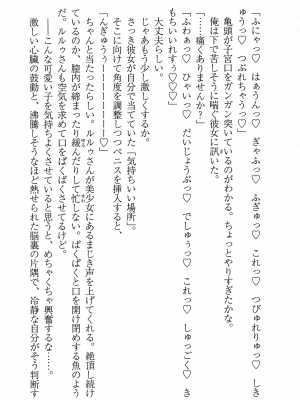 「ふにゃっ♡　はぁうんっ♡　ぎゃふっ♡　ふぎゅっ♡　これっ♡　つびゅれりゅっ♡　しき
ゅうっ♡　つぶれちゃうっ♡」
亀頭が子宮口をガンガン突いているのがわかる。ちょっとやりすぎたかな。
俺は下で苦しそうに喘ぐ彼女に訊いた。
「……痛くありませんか？」
「ふわぁっ♡　ひゃいっ♡　だいじょうぶっ♡　でしゅうっ♡　これっ♡　しゅっごくっ♡　き
もちいいれすぅ♡♡♡」
大丈夫らしい。
じゃあもう少し激しくするか。
さっき彼女が自分で当てていた「気持ちいい場所」。
そこに向けて角度を調整しつつペニスを挿入すると、
「んぎゅうぅ────────────────♡」
ちゃんと当たったらしい。ルルゥさんが美少女にあるまじき声を上げてくれる。絶頂し続け
ているのか、膣内が締まったり緩んだりして忙しない。ぱくぱくと口を開け閉めする魚のよう
だ。ルルゥさんも空気を求めて口をぱくぱくさせてるけど。
──こんな可愛い子を気持ちよくさせていると思うと、めちゃくちゃ興奮するな…………。
激しい心臓の鼓動と、沸騰しそうなほど熱せられた脳裏の片隅で、冷静な自分がそう判断す